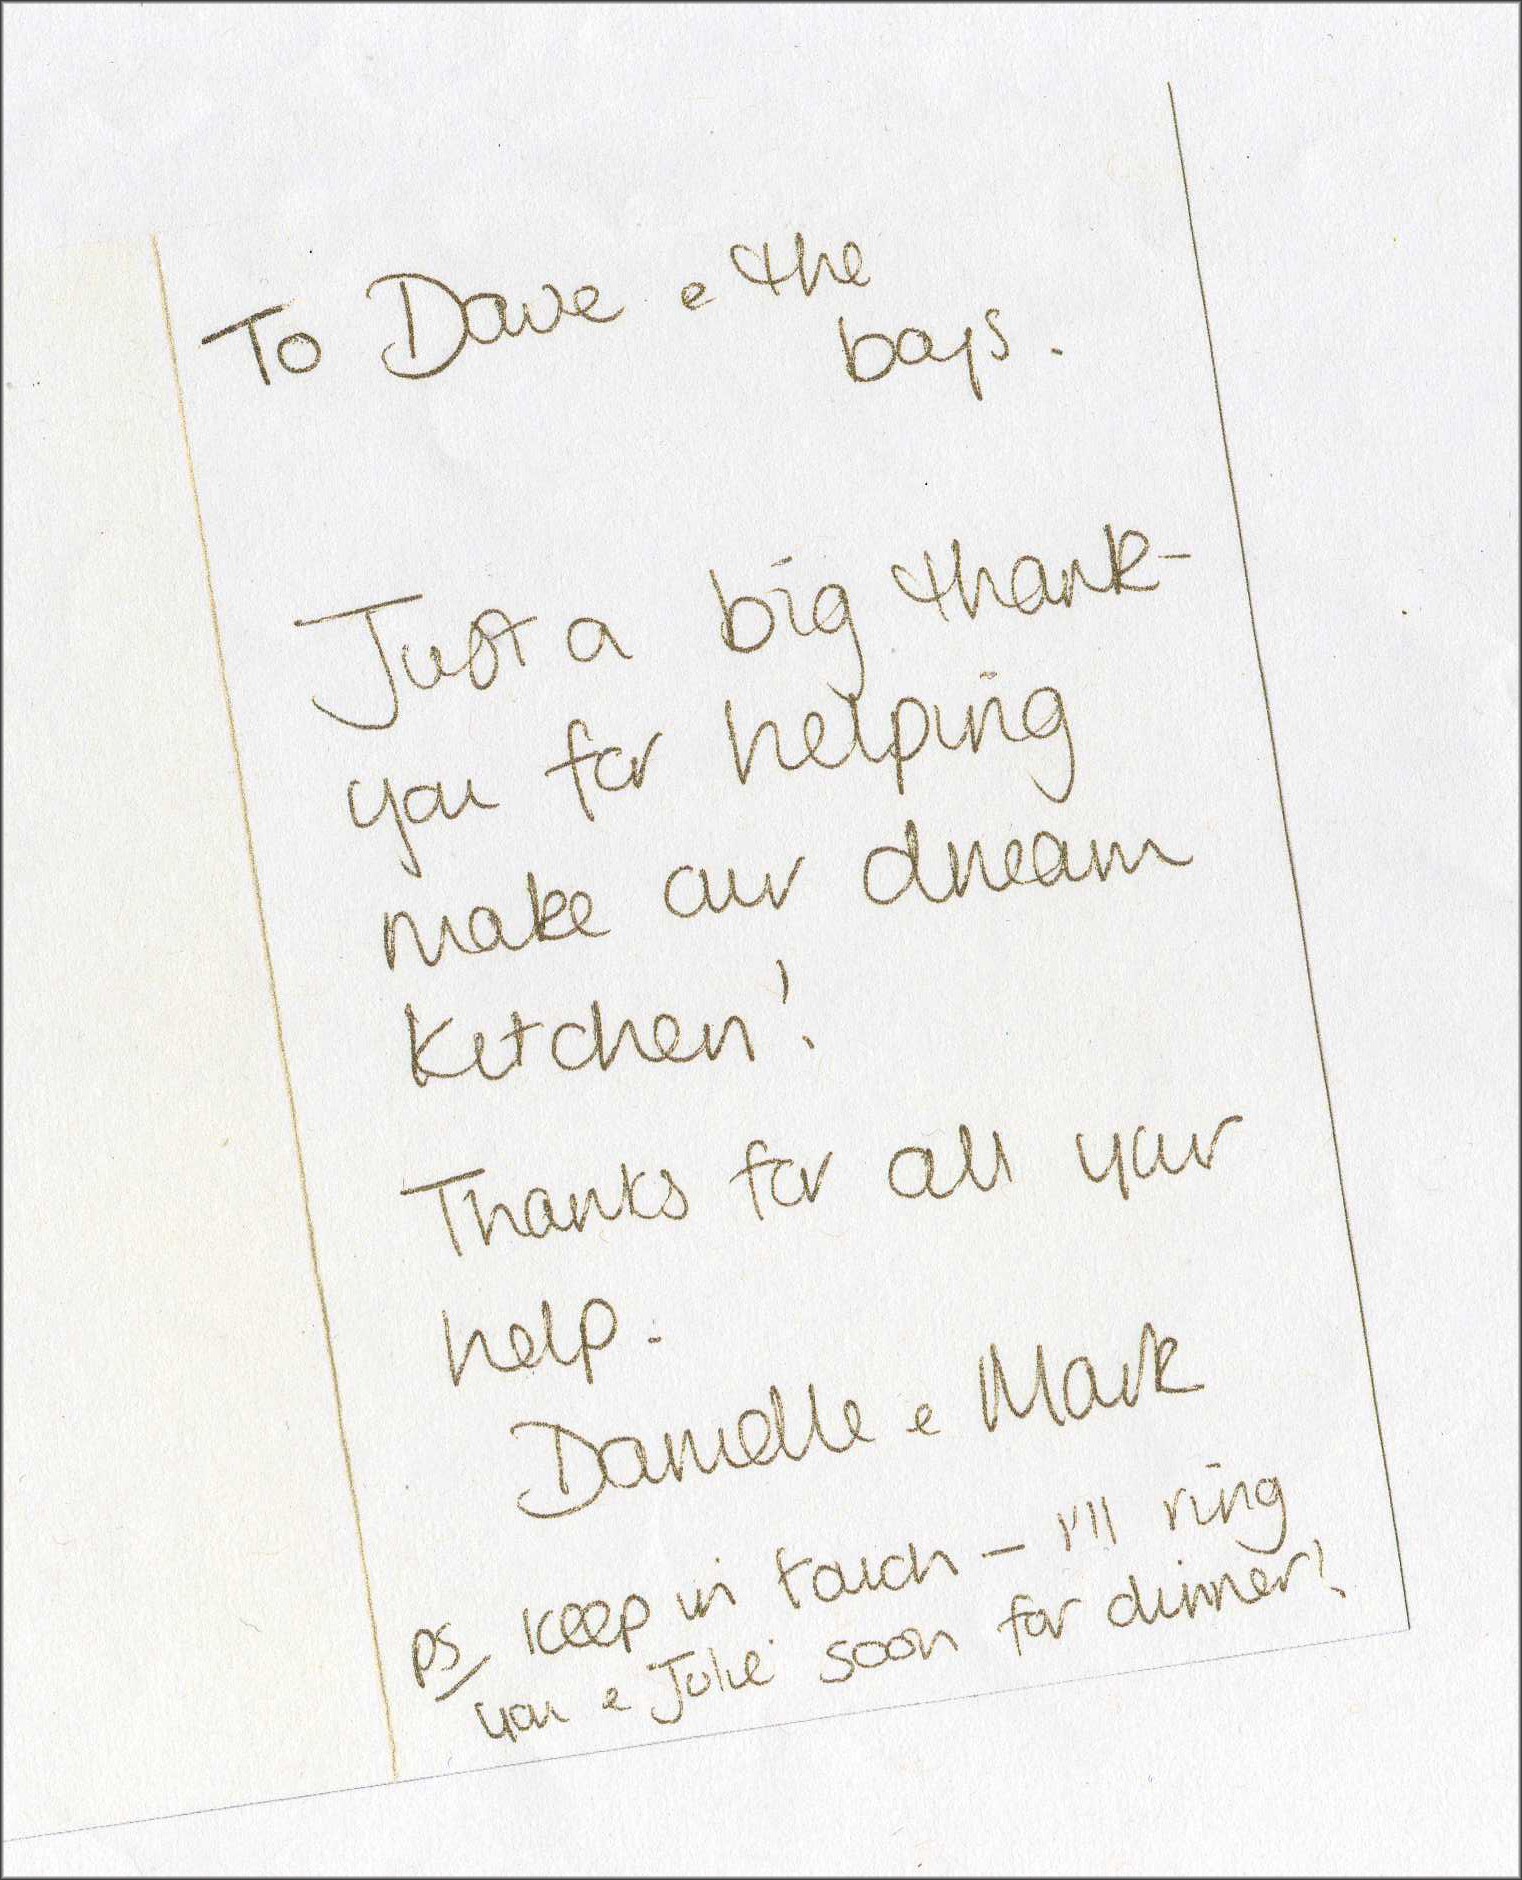 To Dave e the
boys.
Just a big thank-
you for helping
make our dream
kitchen!
Thanks for all your
help.
Danielle e Mark
PS Keep in touch - I'll ring
you e Julie soon for dinner!